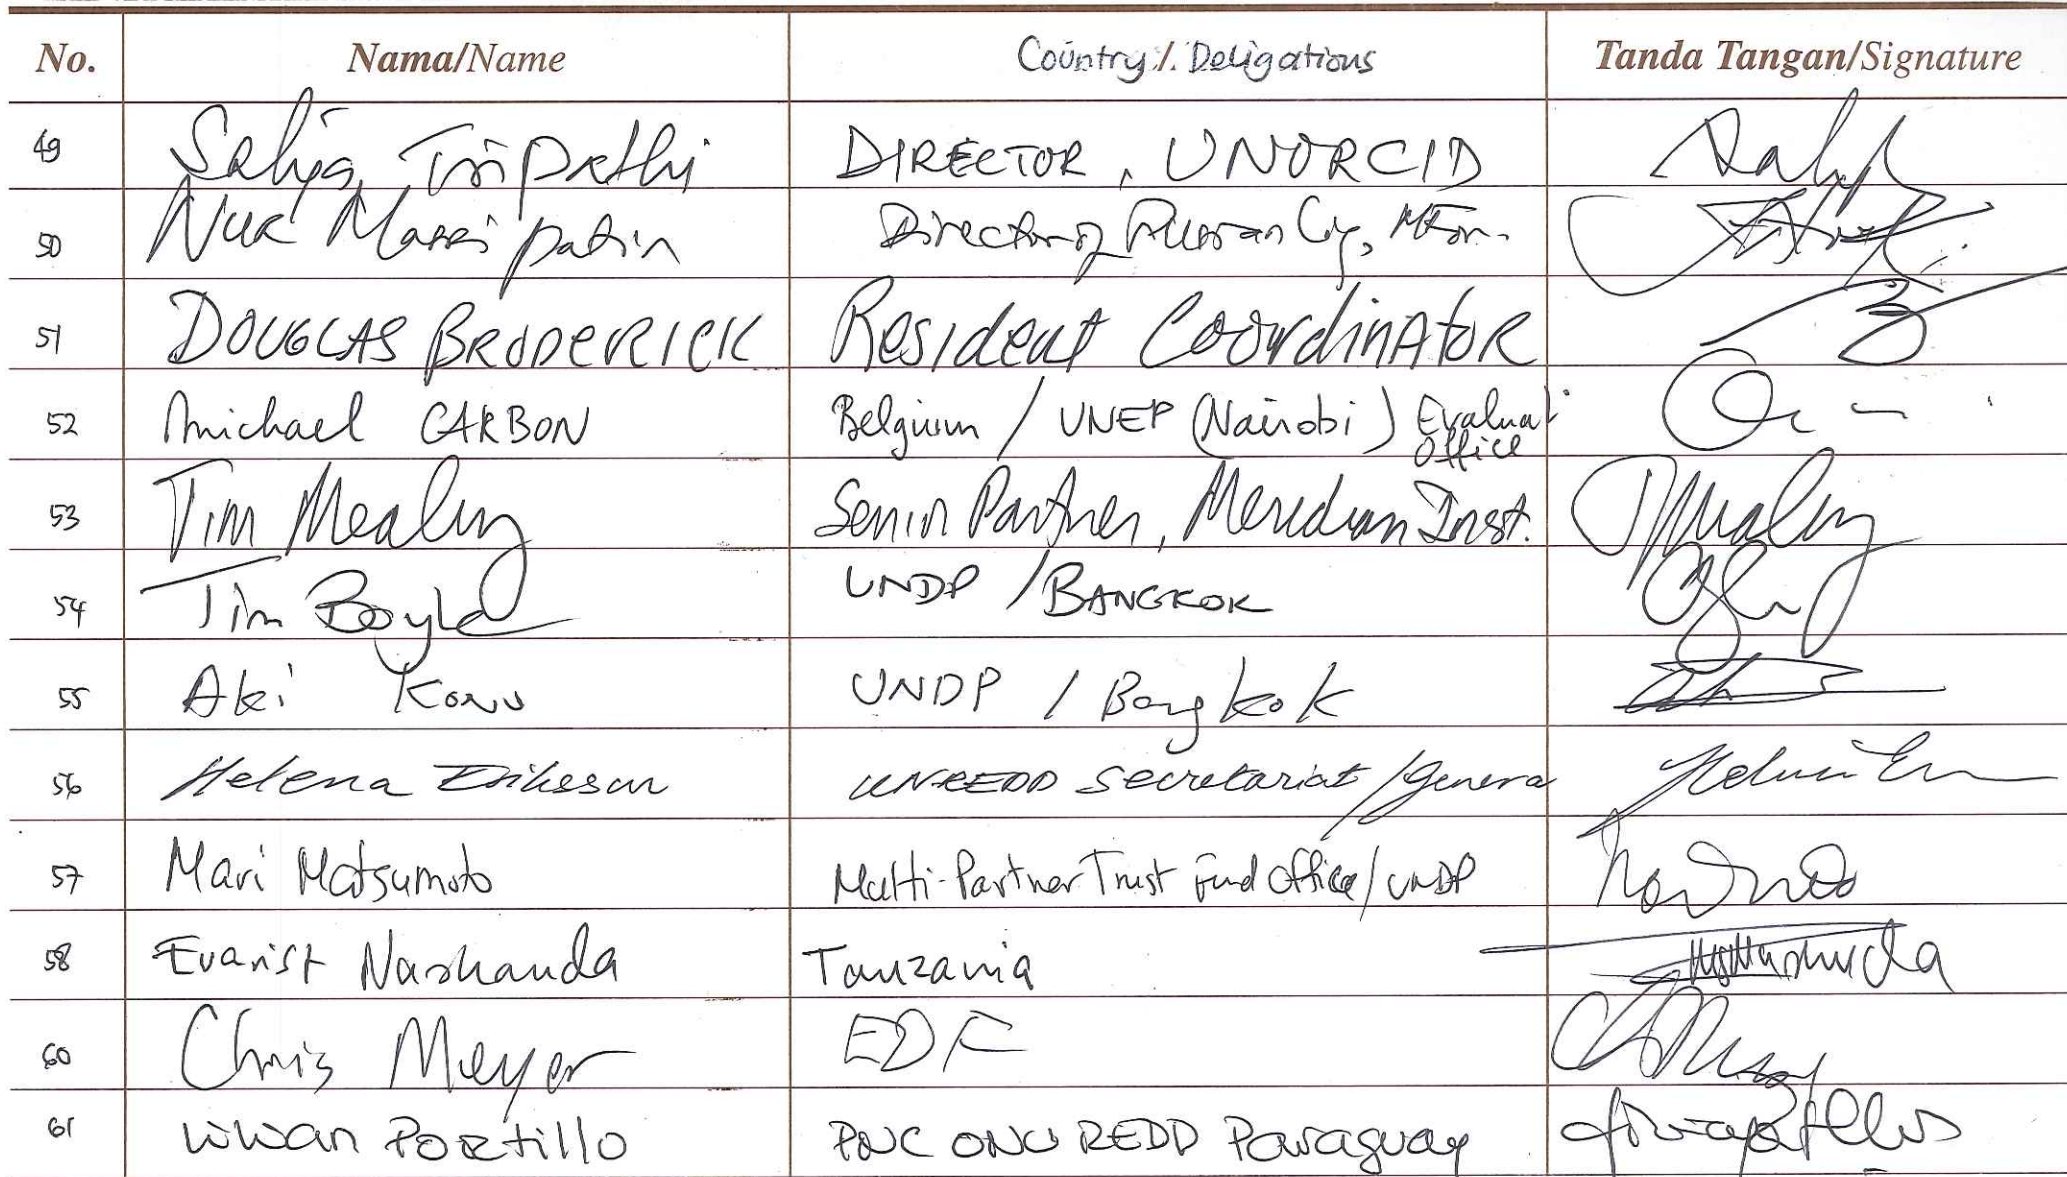 No. Nama/Name Country/. Deligations Tanda Tangan/Signature
49 Satya Tripathi DIRECTOR, UNORCID
50 Nur Masripatin Director of
51 DOUGLAS BRODERICK Resident Coordinator
52 Michael CARBON Belgium / UNEP (Nairobi) Evaluat
Office
53 Tim Mealey Senior Partner, Meridian Inst.
54 Tim Boyle UNDP / BANGKOK
55 Aki Kono UNDP / Bangkok
56 Helena Eriksson UNREDD Secretariat /Geneva
57 Mari Matsumoto Multi-Partner Trust Fund Office/UNDP
58 Evarist Nashanda Tanzania
60 Chris Meyer EDF
61 Lilian Portillo PNC ONU REDD Paraguay